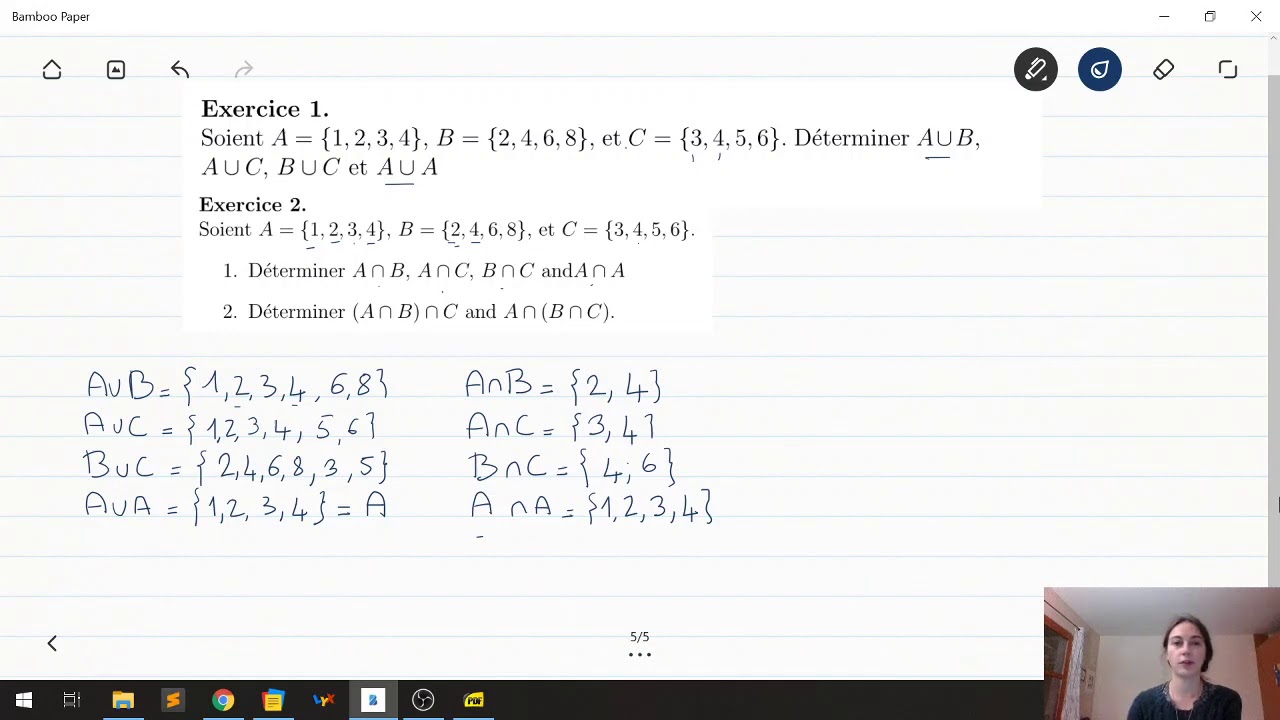 Bamboo Paper
Exercice 1.
Soient A = {1, 2, 3, 4}, B = {2, 4, 6, 8}, et C = {3, 4, 5, 6}. Déterminer A ∪ B,
A ∪ C, B ∪ C et A ∪ A
Exercice 2.
Soient A = {1, 2, 3, 4}, B = {2, 4, 6, 8}, et C = {3, 4, 5, 6}.
1. Déterminer A ∩ B, A ∩ C, B ∩ C andA ∩ A
2. Déterminer (A ∩ B) ∩ C and A ∩ (B ∩ C).
A∪B = {1, 2, 3, 4, 6, 8}
A∪C = {1, 2, 3, 4, 5, 6}
B∪C = {2, 4, 6, 8, 3, 5}
A∪A = {1, 2, 3, 4} = A
A∩B = {2, 4}
A∩C = {3, 4}
B∩C = {4; 6}
A∩A = {1, 2, 3, 4}
5/5
PDF